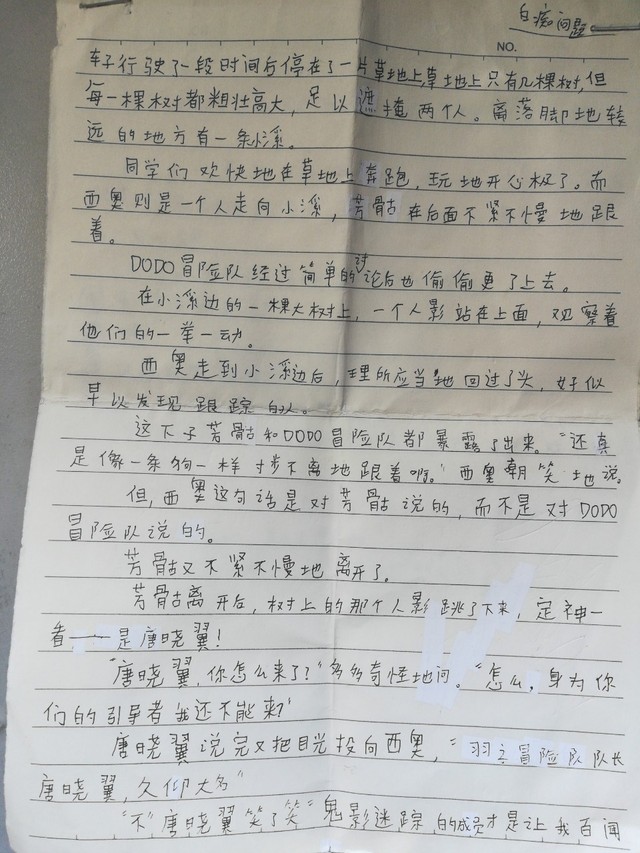 白痴问题
NO.
车子行驶了一段时间后停在了一片草地上,草地上只有几棵树,但
每一棵树都粗壮高大，足以遮掩两个人。离落脚地较
远的地方有一条小溪。
同学们欢快地在草地上奔跑，玩地开心极了。而
西奥则是一个人走向小溪，芳骷在后面不紧不慢地跟
着。
DODO冒险队经过简单的讨论后也偷偷更了上去。
在小溪边的一棵大树上，一个人影站在上面，观察着
他们的一举一动。
西奥走到小溪边后，理所应当地回过了头，好似
早以发现跟踪的人。
这下子芳骷和DODO冒险队都暴露了出来。“还真
是像一条狗一样寸步不离地跟着啊。”西奥朝笑地说。
但，西奥这句话是对芳骷说的，而不是对DODO
冒险队说的。
芳骷又不紧不慢地离开了。
芳骷离开后，树上的那个人影跳了下来，定神一
看——是唐晓翼！
“唐晓翼，你怎么来了？”多多奇怪地问。“怎么，身为你
们的引导者我还不能来？”
唐晓翼说完又把目光投向西奥，“羽之冒险队队长
唐晓翼，久仰大名”
“不”唐晓翼笑了笑“鬼影迷踪的成员才是让我百闻